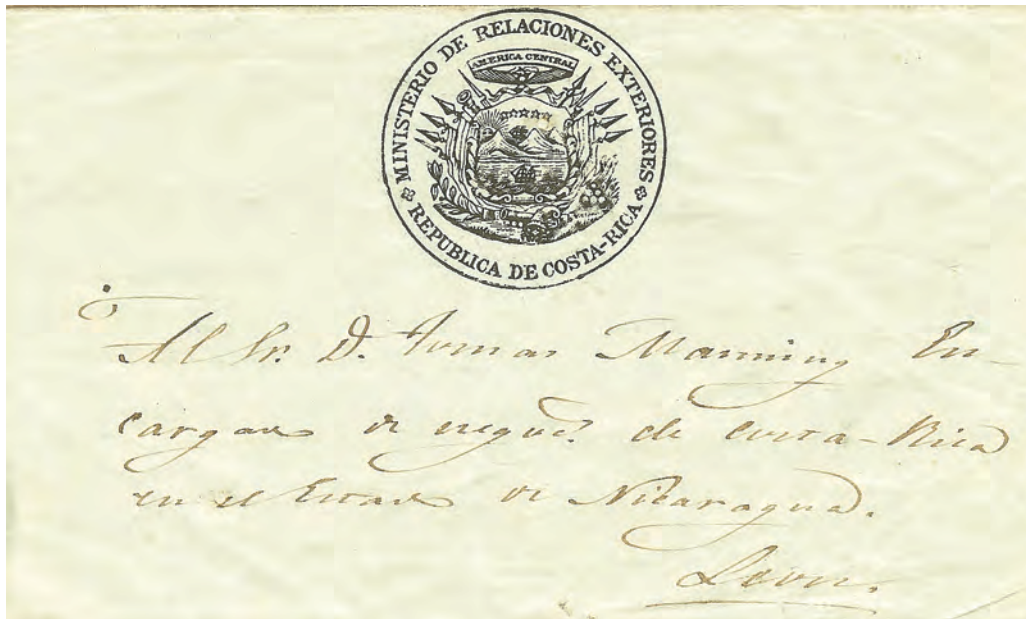 MINISTERIO DE RELACIONES EXTERIORES
AMERICA CENTRAL
REPUBLICA DE COSTA-RICA
Al Sr. D. Tomas Manning En-
cargado de negocs. de Costa-Rica
en el Estado de Nicaragua.
Leon.